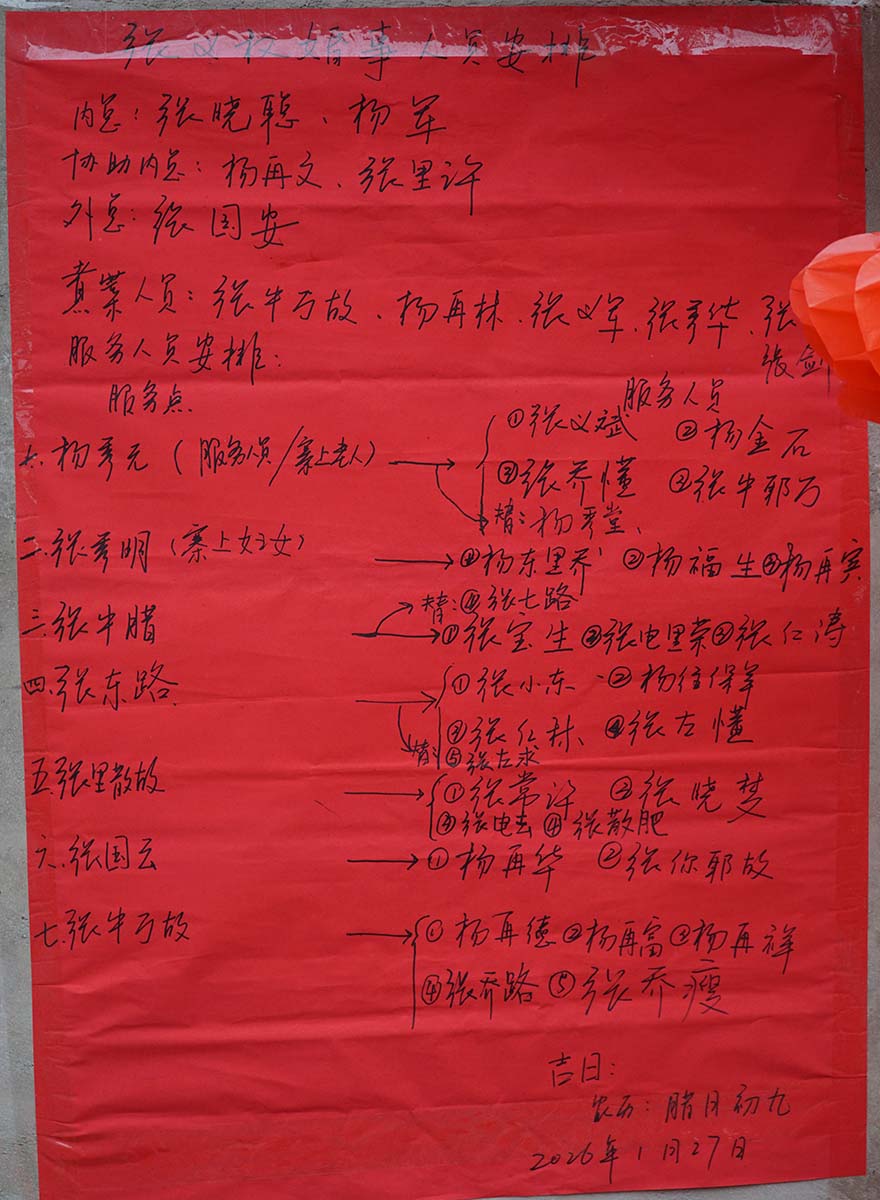 张义权婚事人员安排
内总：张晓聪、杨军
协助内总：杨再文、张里许
外总：张国安
煮菜人员：张牛丂故、杨再林、张义军、张秀华、张
张剑
服务人员安排：
服务点 服务人员
一、杨秀元（服务人员/寨上老人） ①张义斌 ②杨金石
③张乔懂 ④张牛耶丂
替：杨秀堂、
二、张秀明（寨上妇女） ①杨东里乔 ②杨福生 ③杨再宾
替：④张七路
三、张牛腊 ①张宝生 ②张电里荣 ③张仁涛
四、张东路 ①张小东 ②杨往保羊
③张仁林、④张左懂
替：⑤张左求
五、张里散故 ①张常许 ②张晓楚
③张电去 ④张散肥
六、张国云 ①杨再华 ②张你耶故
七、张牛丂故 ①杨再德 ②杨再富 ③杨再祥
④张乔路 ⑤张乔瘦
吉日：
农历：腊月初九
2026年1月27日